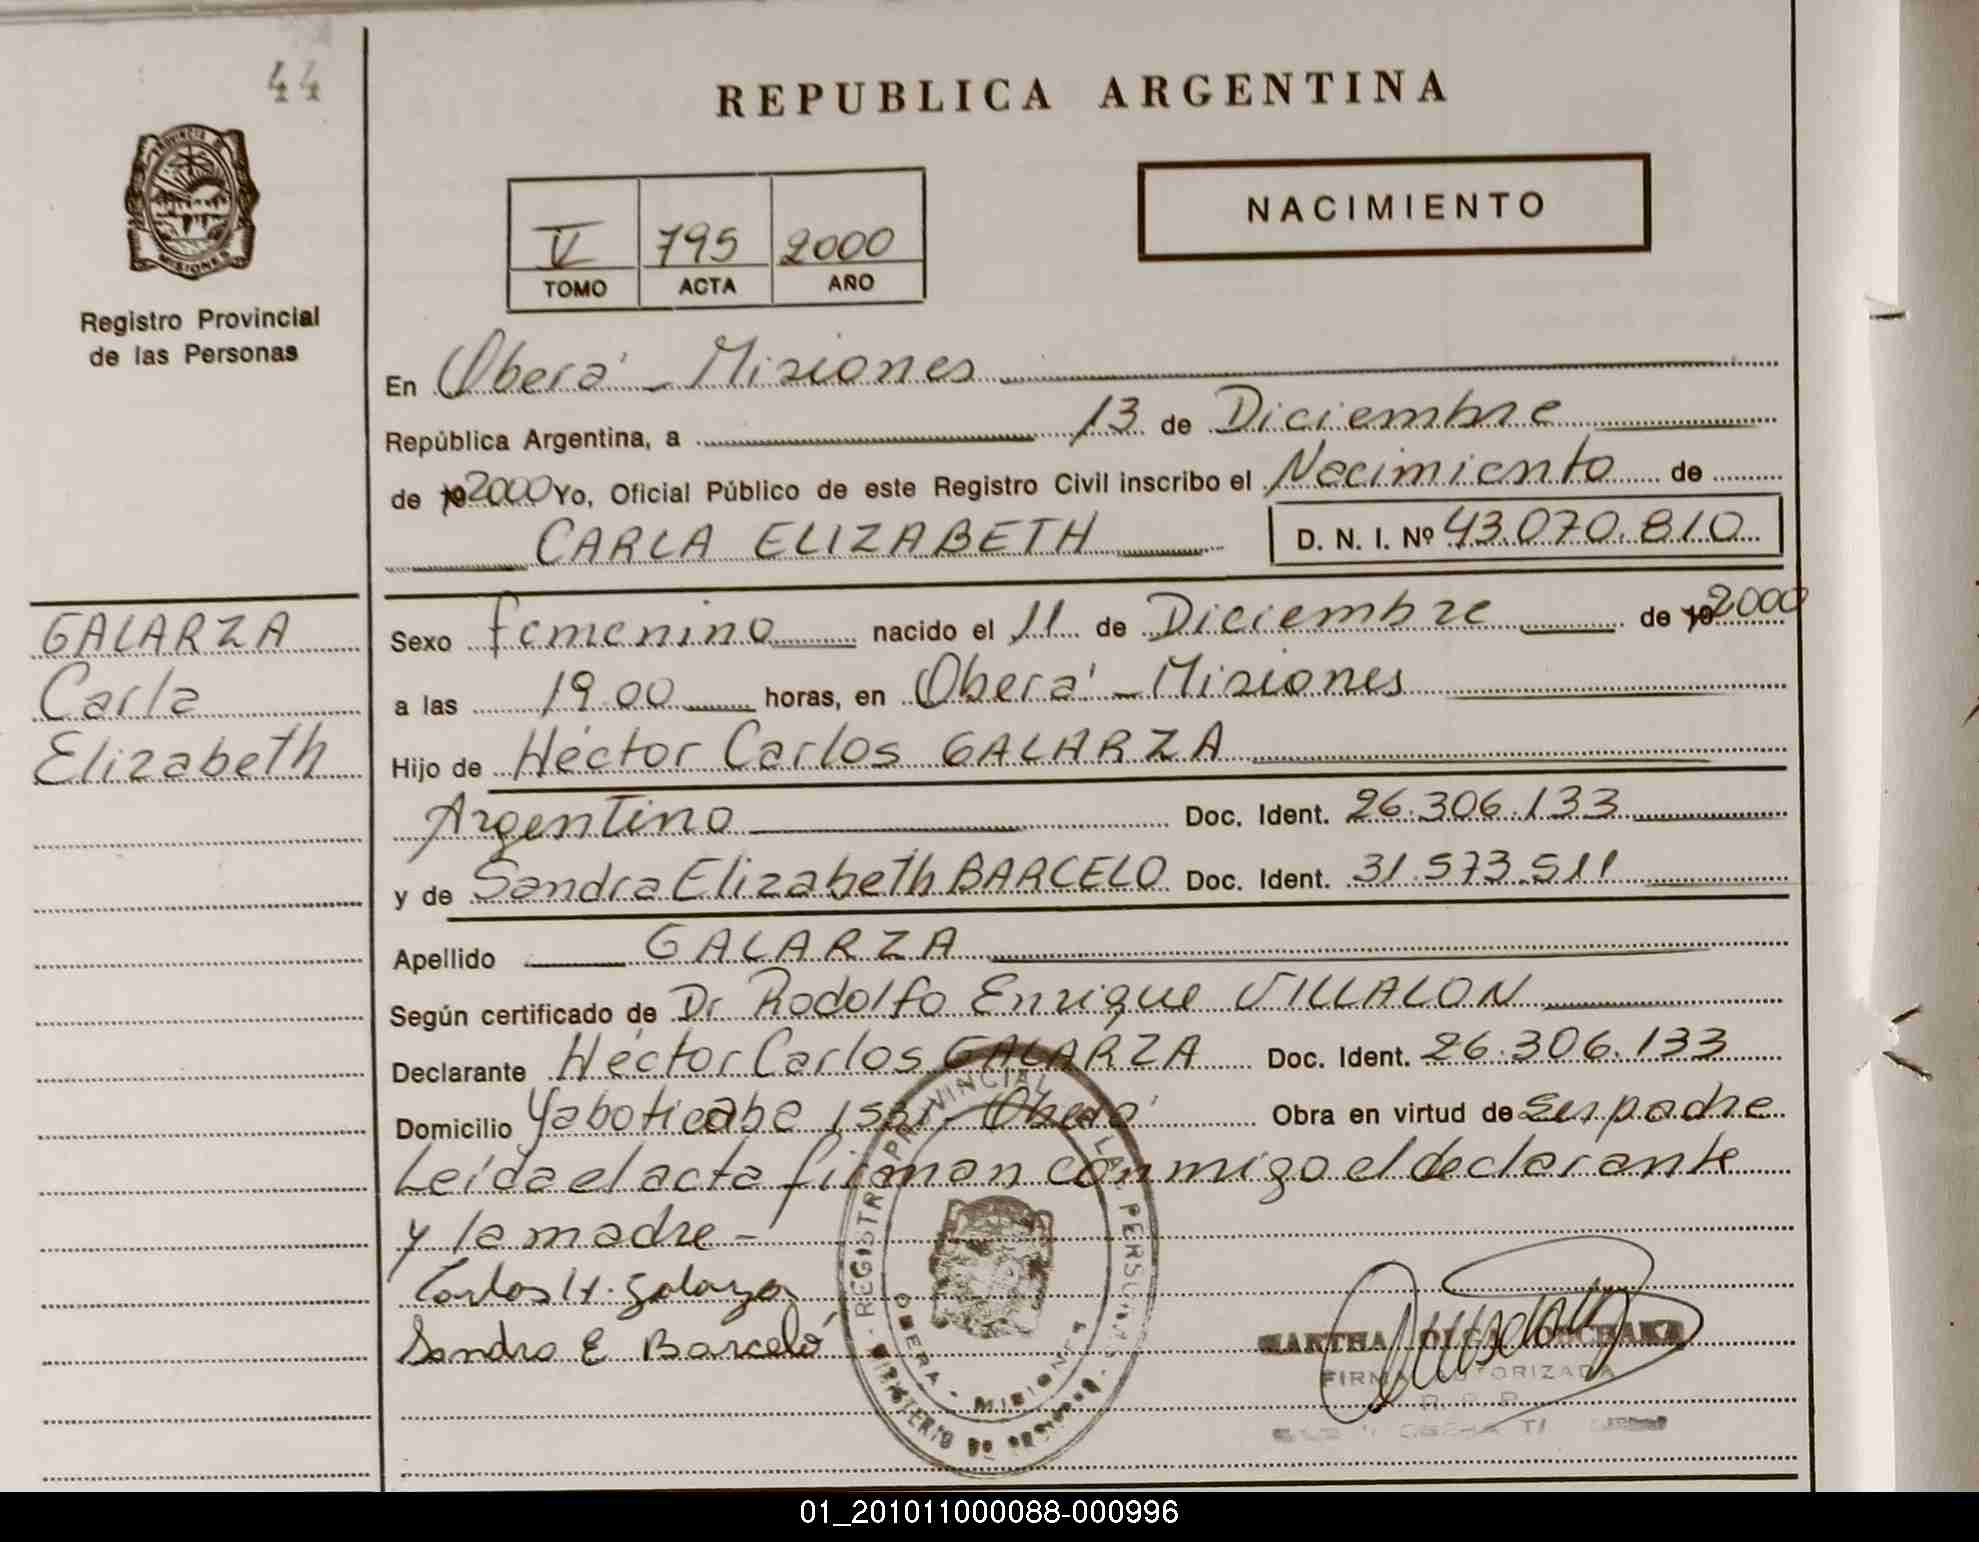 44
REPUBLICA ARGENTINA
PROVINCIA DE
MISIONES
Registro Provincial
de las Personas
V 795 2000
TOMO ACTA AÑO
NACIMIENTO
En Oberá - Misiones
República Argentina, a 13 de Diciembre
de 192000 Yo, Oficial Público de este Registro Civil inscribo el Nacimiento de
CARLA ELIZABETH D. N. I. Nº 43.070.810
GALARZA
Carla
Elizabeth
Sexo Femenino nacido el 11 de Diciembre de 192000
a las 19.00 horas, en Oberá - Misiones
Hijo de Héctor Carlos GALARZA
Argentino Doc. Ident. 26.306.133
y de Sandra Elizabeth BARCELO Doc. Ident. 31.573.511
Apellido GALARZA
Según certificado de Dr Rodolfo Enrique VILLALON
Declarante Héctor Carlos GALARZA Doc. Ident. 26.306.133
Domicilio Yaboticaba - Oberá Obra en virtud de ser padre
Leída el acta firman conmigo el declarante
y la madre -
Carlos H. Galarza
Sandra E Barceló
REGISTRO PROVINCIAL DE LAS PERSONAS
OBERA - MISIONES
MINISTERIO DE
MARTHA OLGA
FIRMA AUTORIZADA
R. P. P.
01_201011000088-000996